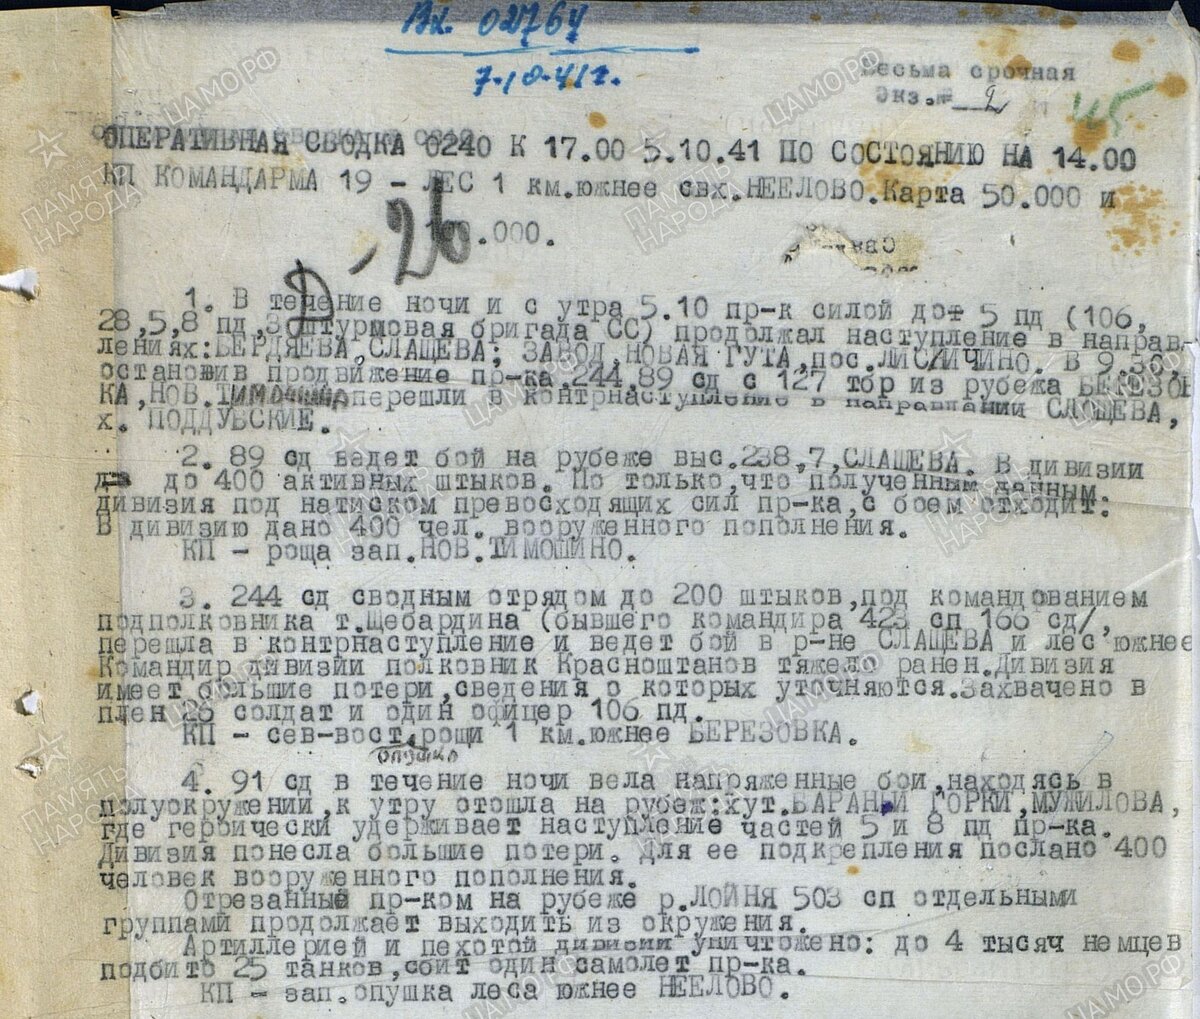 Вх. 02764
7.10.41г.
Весьма срочная
Экз.№ 2
45
ОПЕРАТИВНАЯ СВОДКА 0240 К 17.00 5.10.41 ПО СОСТОЯНИЮ НА 14.00
КП КОМАНДАРМА 19 – ЛЕС 1 км.южнее свх.НЕЕЛОВО.Карта 50.000 и
.000.
-26
1. В течение ночи и с утра 5.10 пр-к силой до 5 пд (106,
28,5,8 пд, штурмовая бригада СС) продолжал наступление в направ-
лениях:БЕРДЯЕВА,СЛАЩЕВА; ЗАВОД,НОВАЯ ГУТА,пос.ЛИСИЧИНО. В 9.30,
остановив продвижение пр-ка,244,89 сд с 127 тбр из рубежа БЕРЕЗОВ
КА,НОВ.ТИМОШИНО перешли в контрнаступление в направлении СЛАЩЕВА,
х. ПОДДУБСКИЕ.
2. 89 сд ведет бой на рубеже выс.238,7,СЛАЩЕВА. В дивизии
до 400 активных штыков. По только,что полученным данным
дивизия под натиском превосходящих сил пр-ка,с боем отходит.
В дивизию дано 400 чел. вооруженного пополнения.
КП – роща зап.НОВ.ТИМОШИНО.
3. 244 сд сводным отрядом до 200 штыков,под командованием
подполковника т.Щебардина (бывшего командира 423 сп 166 сд/,
перешла в контрнаступление и ведет бой в р-не СЛАЩЕВА и лес южнее
Командир дивизии полковник Красноштанов тяжело ранен.Дивизия
имеет большие потери,сведения о которых уточняются.Захвачено в
плен 26 солдат и один офицер 106 пд.
КП – сев-вост.рощи 1 км.южнее БЕРЕЗОВКА.
опушка
4. 91 сд в течение ночи вела напряженные бои,находясь в
полуокружении,к утру отошла на рубеж:хут.БАРАНЬИ ГОРКИ,МУЖИЛОВА,
где героически удерживает наступление частей 5 и 8 пд пр-ка.
Дивизия понесла большие потери. Для ее подкрепления послано 400
человек вооруженного пополнения.
Отрезанный пр-ком на рубеже р.ЛОЙНЯ 503 сп отдельными
группами продолжает выходить из окружения.
Артиллерией и пехотой дивизии уничтожено: до 4 тысяч немцев
подбито 25 танков,сбит один самолет пр-ка.
КП – зап.опушка леса южнее НЕЕЛОВО.